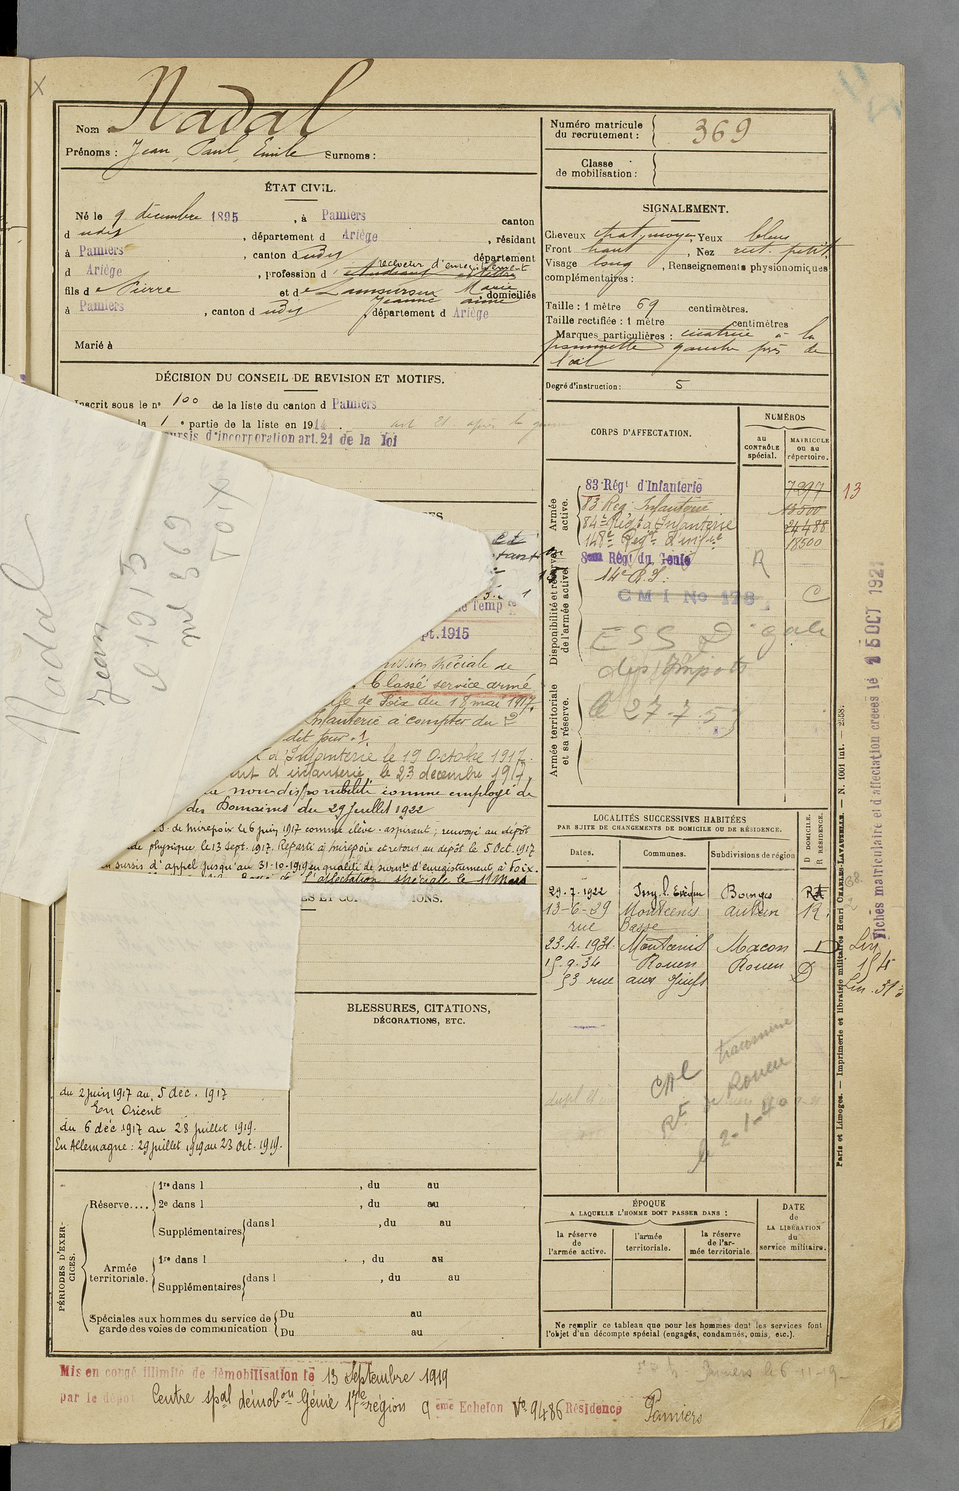 Nom Nadal
Prénoms : Jean, Paul, Emile Surnoms :
ÉTAT CIVIL.
Né le 9 décembre 1895, à Pamiers canton
d udit, département d Ariège, résidant
à Pamiers, canton d udit département
receveur d'enregistrement
d Ariège, profession d étudiant
fils de Pierre et de Lamoureux Marie
Jeanne Aimé domiciliés
à Pamiers, canton d udit département d Ariège
Marié à
DÉCISION DU CONSEIL DE REVISION ET MOTIFS.
Inscrit sous le nº 100 de la liste du canton d Pamiers
la 1 e partie de la liste en 191
art 21
sursis d'incorporation art. 21 de la loi
Nadal
Jean
cl 1915
ml 369
FOIX
pt. 1915
spéciale de
Classé service armé
de Foix du 18 mai 1917.
Infanterie à compter du 2
dit jour. 1
d'Infanterie le 19 Octobre 1917.
d'infanterie, le 23 décembre 1917,
non-disponibilité comme employé de
des Domaines du 29 juillet 1922
de Mirepoix le 6 juin 1917 comme élève-aspirant ; renvoyé au dépôt
physique le 13 sept. 1917. Reparti à Mirepoix et retour au dépôt le 5 Oct. 1917
sursis d'appel jusqu'au 31-10-1919 en qualité de surnre d'enregistrement à Foix.
l'affectation spéciale le 11 Mars
BLESSURES, CITATIONS,
DÉCORATIONS, ETC.
du 2 juin 1917 au 5 déc. 1917
En Orient
du 6 déc 1917 au 28 juillet 1919.
En Allemagne : 29 juillet 1919 au 23 Oct. 1919.
PÉRIODES D'EXERCICES.
Réserve.... 1re dans l , du au
2e dans l , du au
Supplémentaires dans l , du au
Armée territoriale. 1re dans l , du au
Supplémentaires dans l , du au
Spéciales aux hommes du service de garde des voies de communication Du au
Du au
Mis en congé illimité de démobilisation le 13 Septembre 1919
par le dépôt Centre spal démobon Génie 17e région 9 eme Echelon Ve 9486 Résidence Pamiers
Numéro matricule
du recrutement : 369
Classe
de mobilisation :
SIGNALEMENT.
Cheveux chat. moyen, Yeux bleus
Front haut, Nez rect. petit
Visage long, Renseignements physionomiques
complémentaires :
Taille : 1 mètre 69 centimètres.
Taille rectifiée : 1 mètre centimètres
Marques particulières : cicatrice à la
pommette gauche près de
l'œil
Degré d'instruction : 5
CORPS D'AFFECTATION.
NUMÉROS
au CONTRÔLE spécial.
MATRICULE ou au répertoire.
Armée active.
83 Régt d'Infanterie 7297 13
83 Rég Infanterie 13300
84e Régt d'Infanterie 24488
148e Regt d'Infie 18500
Disponibilité et réserve de l'armée active.
8eme Régt du Génie R
14e R.S.
C M I No 178 C
ESS D gale
des Impots
27-7-5
Armée territoriale et sa réserve.
LOCALITÉS SUCCESSIVES HABITÉES
PAR SUITE DE CHANGEMENTS DE DOMICILE OU DE RÉSIDENCE.
D DOMICILE.
R RÉSIDENCE.
Dates. Communes. Subdivisions de région
29-7-1922 Bourges R
13-6-29 Montcenis Autun R.
rue Basse
23-4-1931 Montcenis Macon D
15-9-34 Rouen Rouen D
53 rue aux Juifs
transmise
Rt de Rouen
le 2-1-40
ÉPOQUE
A LAQUELLE L'HOMME DOIT PASSER DANS :
DATE
de
LA LIBÉRATION
du
service militaire.
la réserve
de
l'armée active.
l'armée
territoriale.
la réserve
de l'ar-
mée territoriale.
Ne remplir ce tableau que pour les hommes dont les services font
l'objet d'un décompte spécial (engagés, condamnés, omis, etc.).
Pamiers le 6-11-19
Fiches matriculaire et d'affectation créées le 15 OCT 1921
Paris et Limoges. — Imprimerie et librairie militaires Henri CHARLES-LAVAUZELLE. — N. 1001 int. — 2558.